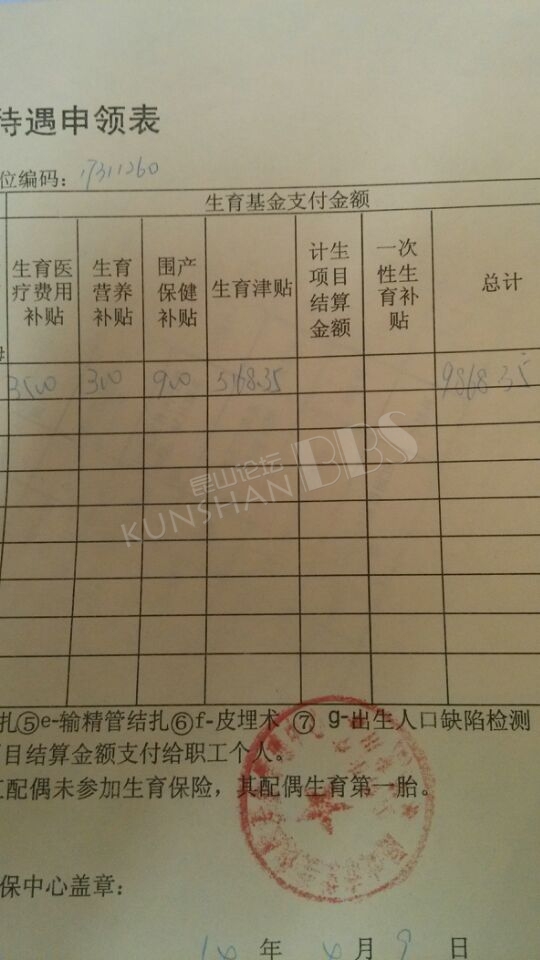 待遇申领表
位编码：17311260
生育基金支付金额
生育医疗费用补贴
生育营养补贴
围产保健补贴
生育津贴
计生项目结算金额
一次性生育补贴
总计
3500 300 900 5168.35 9868.35
昆山论坛
KUNSHAN BBS
扎⑤e-输精管结扎⑥f-皮埋术 ⑦ g-出生人口缺陷检测
目结算金额支付给职工个人。
配偶未参加生育保险，其配偶生育第一胎。
保中心盖章：
年 月 9 日